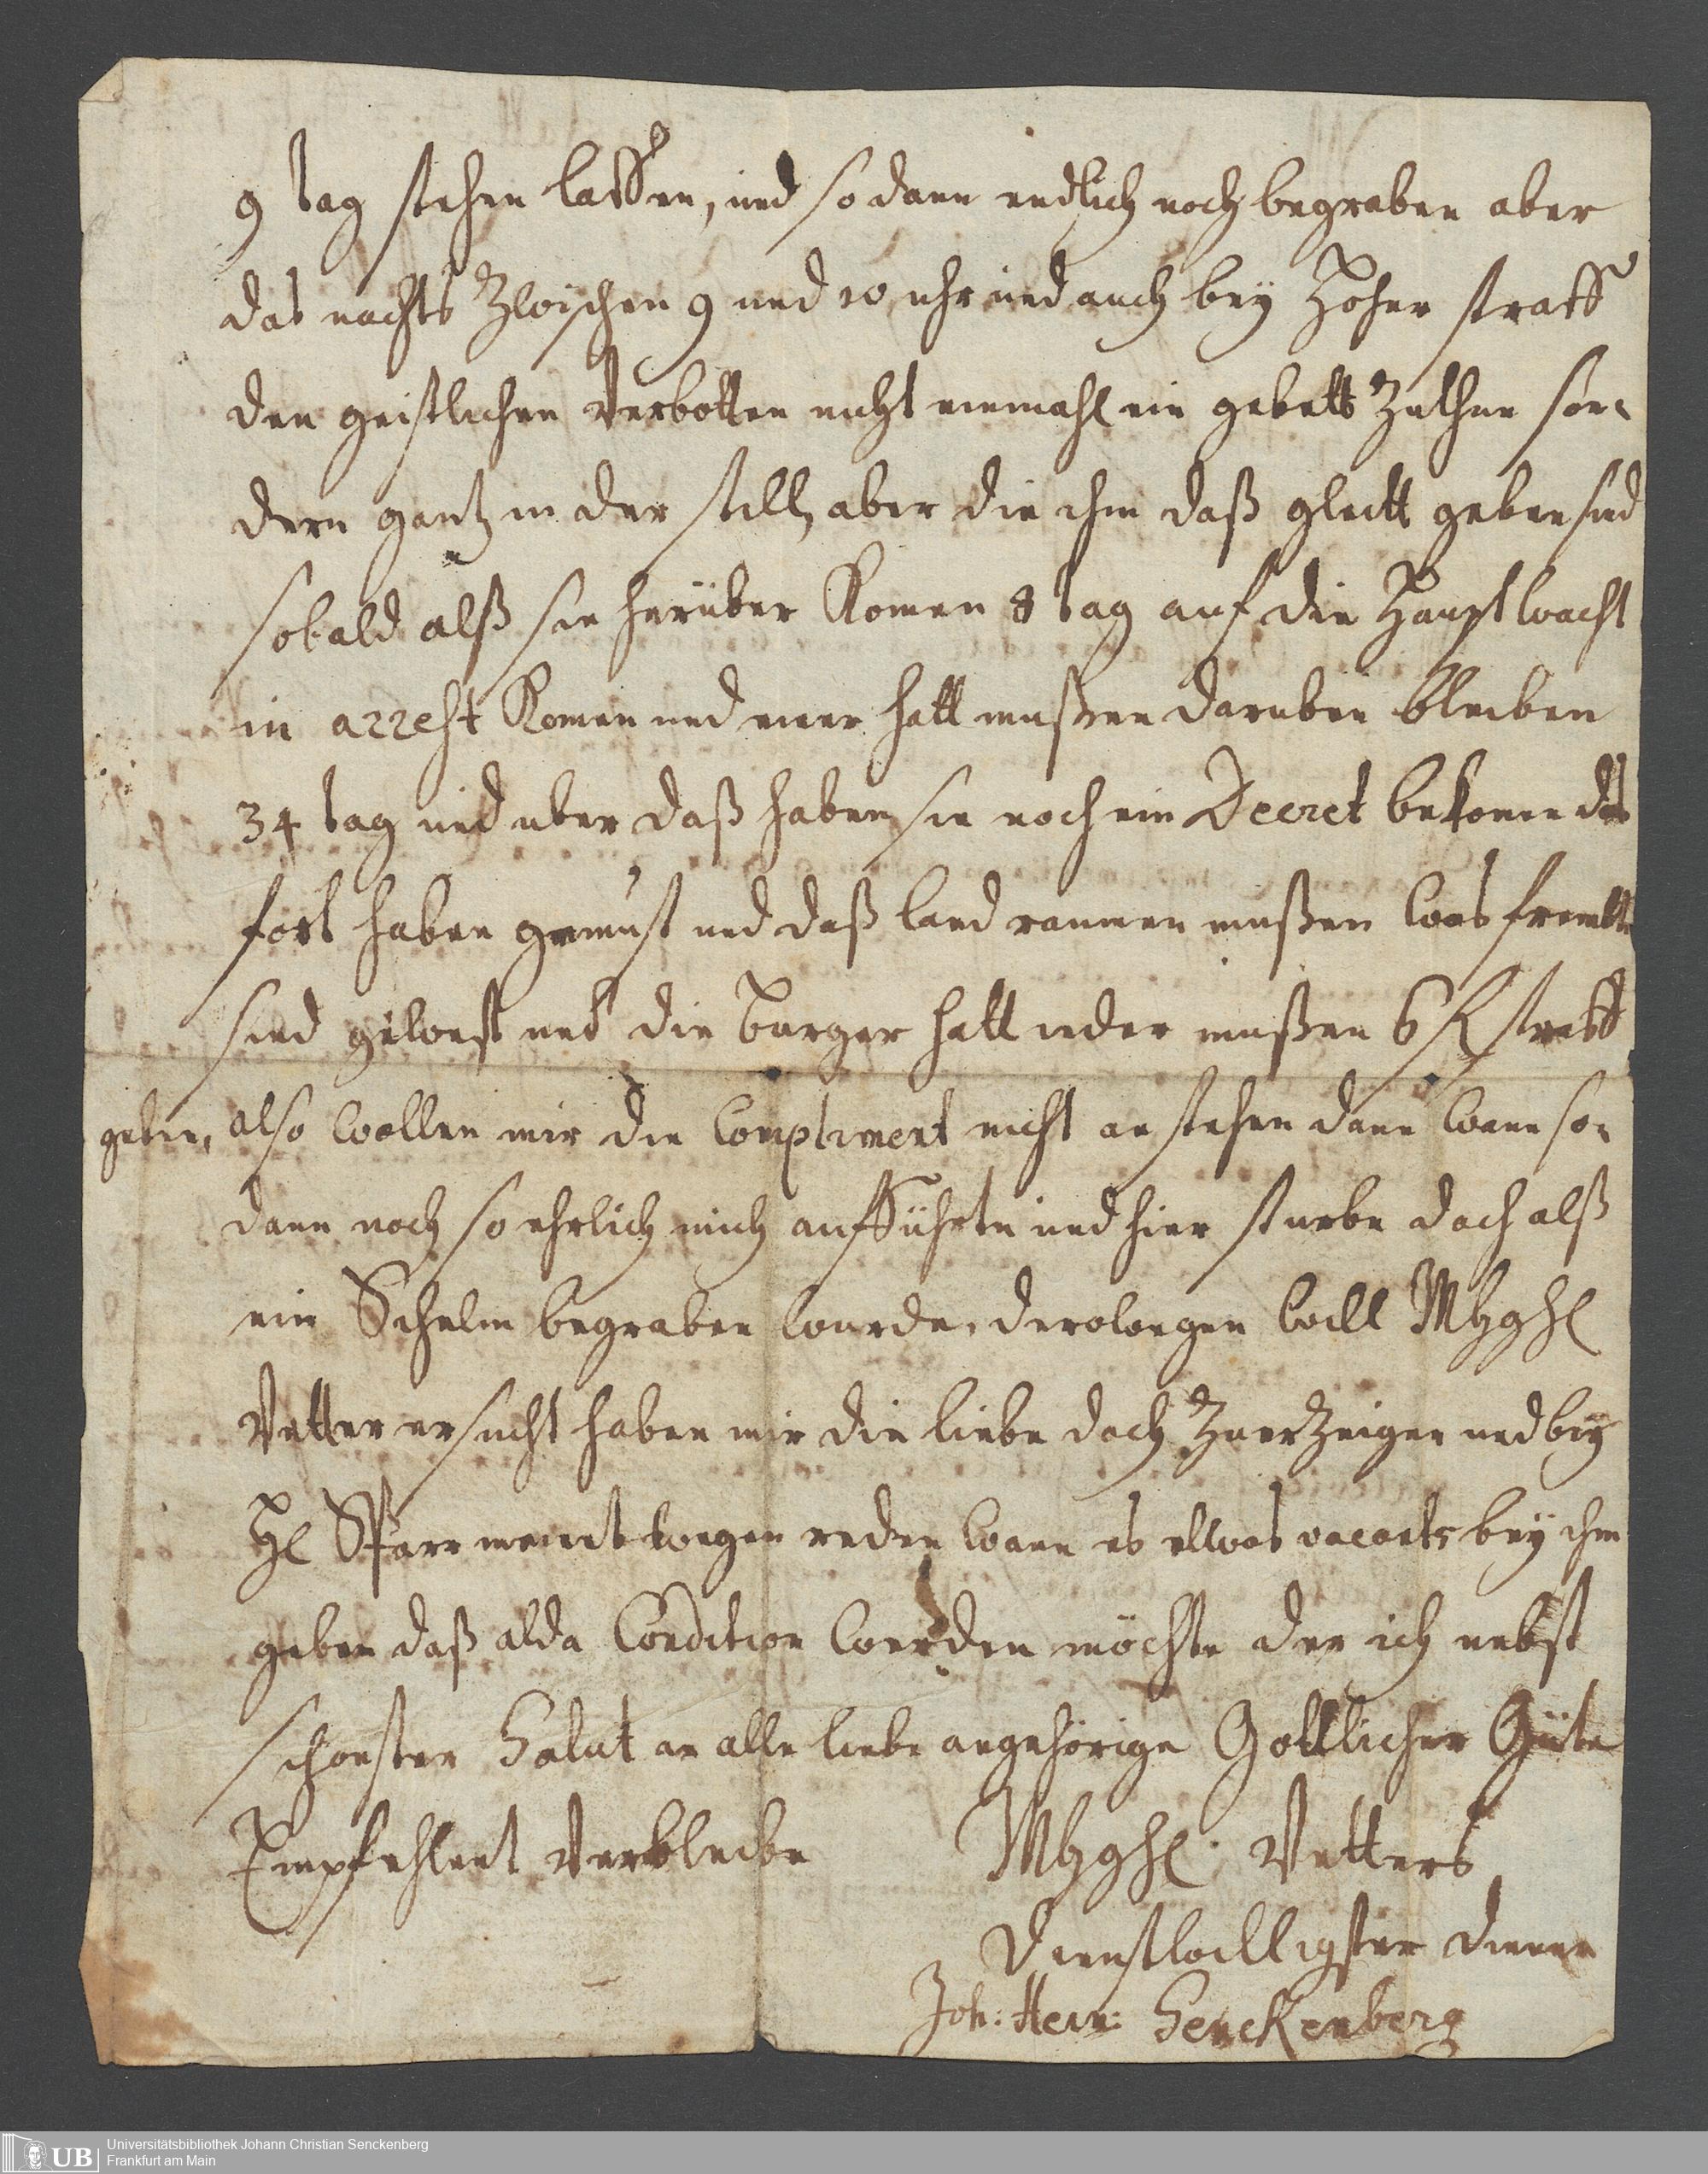 9 tag stehen lassen, und so dann endlich noch begraben aber
das nachts Zwischen 9 und 10 uhr und auch bey Hoher straff
den geistlichen Verbotten nicht einmahl ein gebett Zuthun son-
dern gantz in der still, aber die ihm daß gleitt geben sind
sobald alß sie herüber Komen 8 tag auf die Hauptwacht
in arrest Komen und einer hatt mußen daruben bleiben
34 tag und uber daß haben sie noch ein Decret bekomen das
fort haben gemust und daß land raumen mußen was frembte
sind gewest und die burger hatt ieder mußen 6 straff
geben, also wollen mir die Compliment nicht anstehen dann wann so-
dann noch so ehrlich mich aufführte und hier sturbe doch alß
ein Schelm begraben wurde, derowegen will Mhghl
Vetter ersucht haben mir die liebe doch Zuerzeigen und bey
Hl Pfarr meinet wegen reden wann es etwas vacants bey ihm
geben daß alda Condition werden möchte der ich nebst
schonster Salut an alle liebe angehörige Gottlicher Güte
Empfehlent Verbleibe Mhghl. Vetters
Dienstwilligster diener
Joh: Hein: Senckenberg
UB
Universitätsbibliothek Johann Christian Senckenberg
Frankfurt am Main